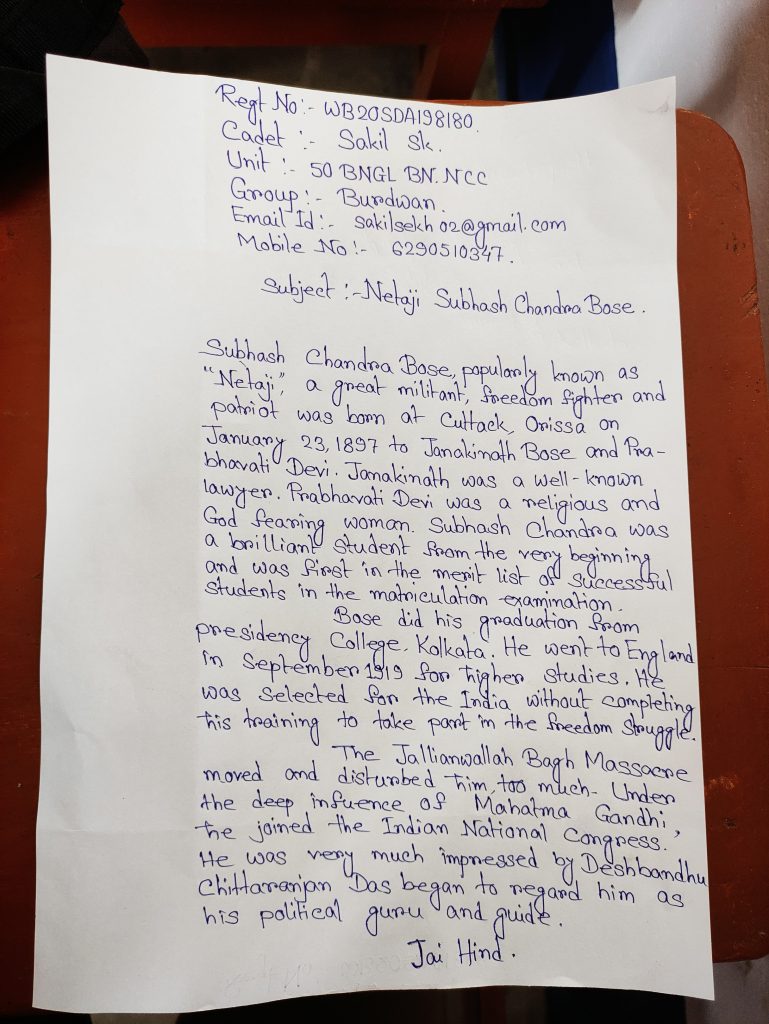 Regt No:- WB20SDA198180.
Cadet :- Sakil Sk.
Unit :- 50 BNGL BN. NCC
Group :- Burdwan.
Email Id :- sakilsekh02@gmail.com
Mobile No :- 6290510347.
Subject :- Netaji Subhash Chandra Bose.
Subhash Chandra Bose, popularly known as
"Netaji", a great militant, freedom fighter and
patriot was born at Cuttack, Orissa on
January 23, 1897 to Janakinath Bose and Pra-
bhavati Devi. Janakinath was a well-known
lawyer. Prabhavati Devi was a religious and
God fearing woman. Subhash Chandra was
a brilliant student from the very beginning
and was first in the merit list of successful
students in the matriculation examination.
Bose did his graduation from
presidency College, Kolkata. He went to England
in September 1919 for higher studies. He
was selected for the India without completing
his training to take part in the freedom struggle.
The Jallianwallah Bagh Massacre
moved and disturbed him, too much. Under
the deep infuence of Mahatma Gandhi,
he joined the Indian National Congress.
He was very much impressed by Deshbandhu
Chittaranjan Das began to regard him as
his political guru and guide.
Jai Hind.